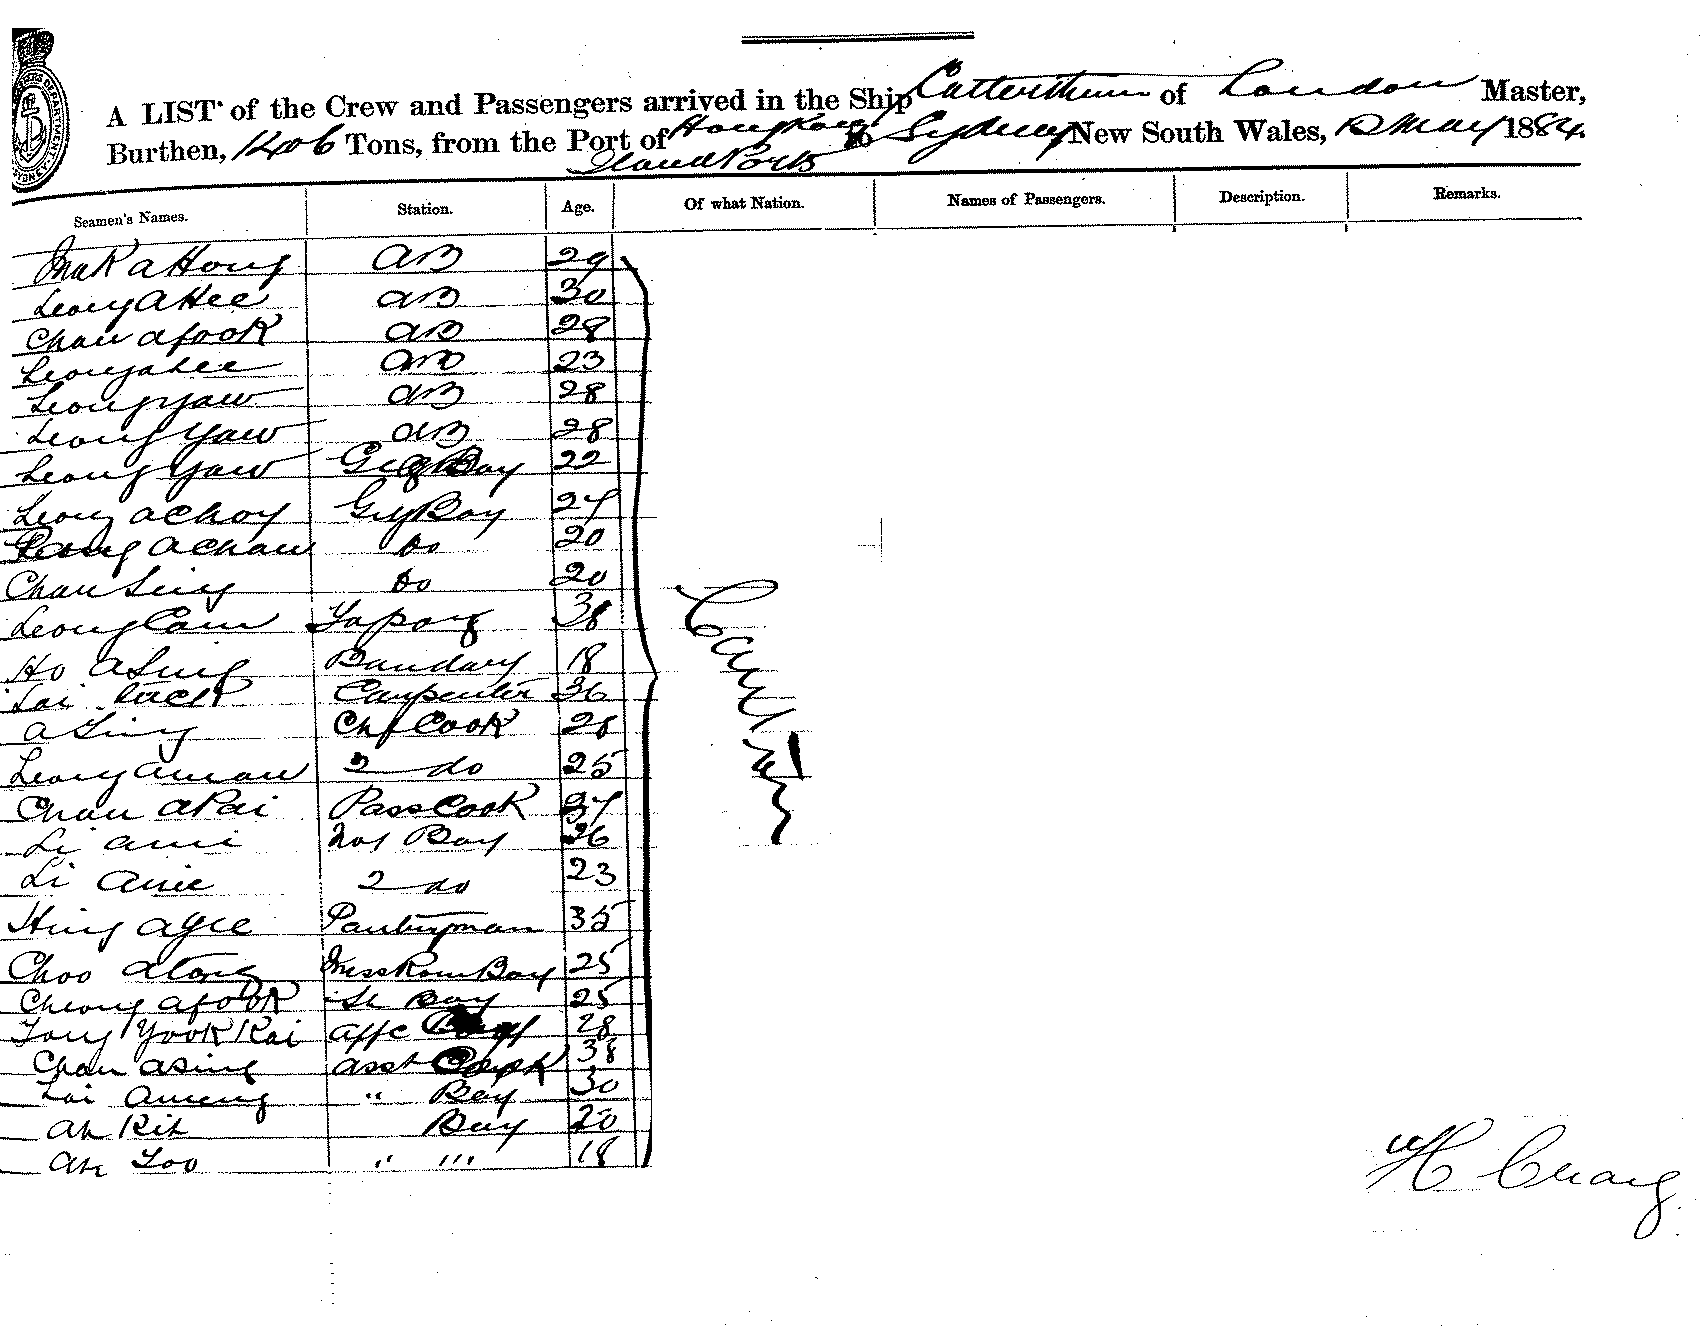 A LIST of the Crew and Passengers arrived in the Ship Catterthun of London Master,
Burthen, 1406 Tons, from the Port of Hong Kong to Sydney New South Wales, 12 May 1884.
Island Ports
Seamen's Names. Station. Age. Of what Nation. Names of Passengers. Description. Remarks.
Mak a Hong AB 29
Leong a Hee AB 30
Chan afook AB 28
Leong a hee AB 23
Leong yaw AB 28
Leong Yaw AB 28
Leong Yaw Boy 22
Leong achoy Boy 27
achan do 20
Chan Sing do 20
Leong Cam 38
Ho a Sing Bandary 18
Lai Carpenter 36
a Sing Chf Cook 28
Leong 2 do 25
Chan a Kai Pass Cook 37
Li Boy 26
Li 2 do 23
Hing Pantryman 35
Choo Mess Room Boy 25
Cheong afook Boy 25
Tong Yook Kai 28
Chan asing asst Cook 38
Lai " Boy 30
Ah Kit Boy 20
Ah Too " " 18
Canton